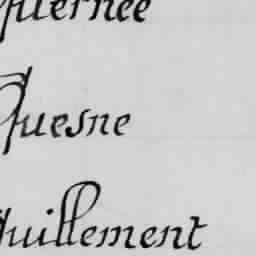 Quernée
Quesne
Quillement